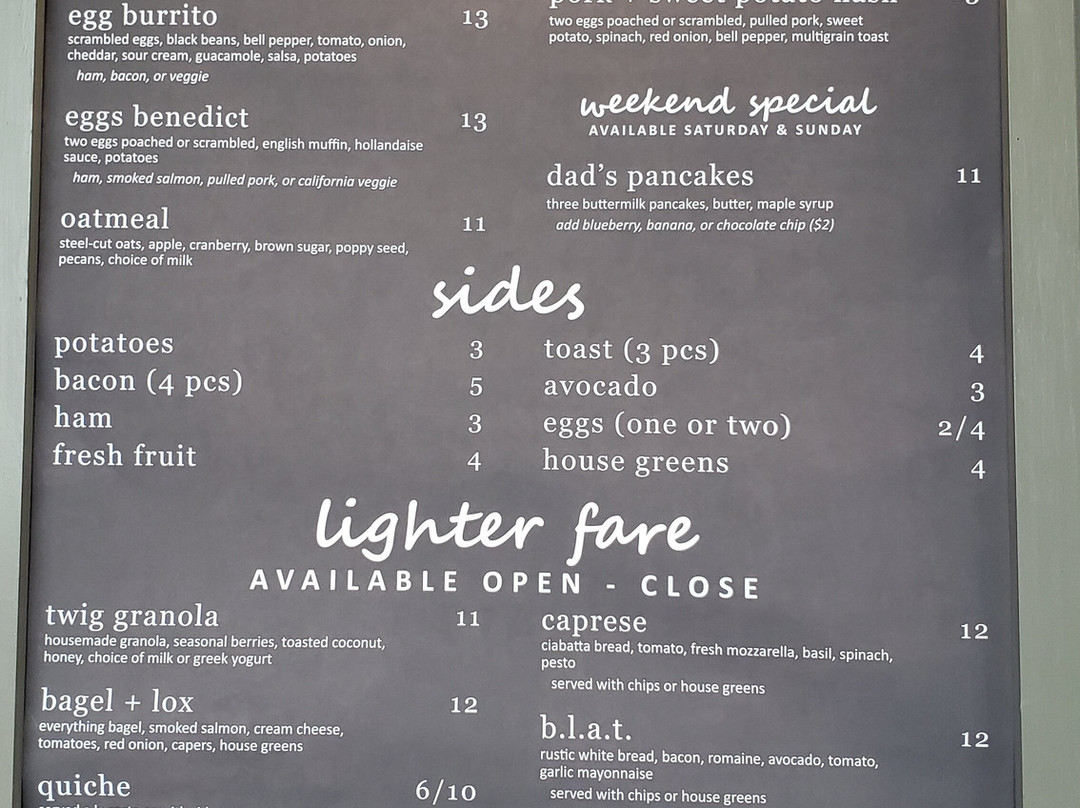 egg burrito 13
scrambled eggs, black beans, bell pepper, tomato, onion,
cheddar, sour cream, guacamole, salsa, potatoes
ham, bacon, or veggie
eggs benedict 13
two eggs poached or scrambled, english muffin, hollandaise
sauce, potatoes
ham, smoked salmon, pulled pork, or california veggie
oatmeal 11
steel-cut oats, apple, cranberry, brown sugar, poppy seed,
pecans, choice of milk
pork + sweet potato hash
two eggs poached or scrambled, pulled pork, sweet
potato, spinach, red onion, bell pepper, multigrain toast
weekend special
AVAILABLE SATURDAY & SUNDAY
dad's pancakes 11
three buttermilk pancakes, butter, maple syrup
add blueberry, banana, or chocolate chip ($2)
sides
potatoes 3
bacon (4 pcs) 5
ham 3
fresh fruit 4
toast (3 pcs) 4
avocado 3
eggs (one or two) 2/4
house greens 4
lighter fare
AVAILABLE OPEN - CLOSE
twig granola 11
housemade granola, seasonal berries, toasted coconut,
honey, choice of milk or greek yogurt
bagel + lox 12
everything bagel, smoked salmon, cream cheese,
tomatoes, red onion, capers, house greens
quiche 6/10
caprese 12
ciabatta bread, tomato, fresh mozzarella, basil, spinach,
pesto
served with chips or house greens
b.l.a.t. 12
rustic white bread, bacon, romaine, avocado, tomato,
garlic mayonnaise
served with chips or house greens